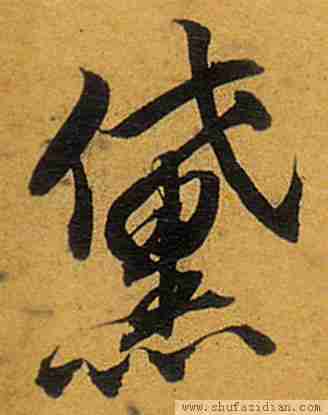 黛
www.shufazidian.com